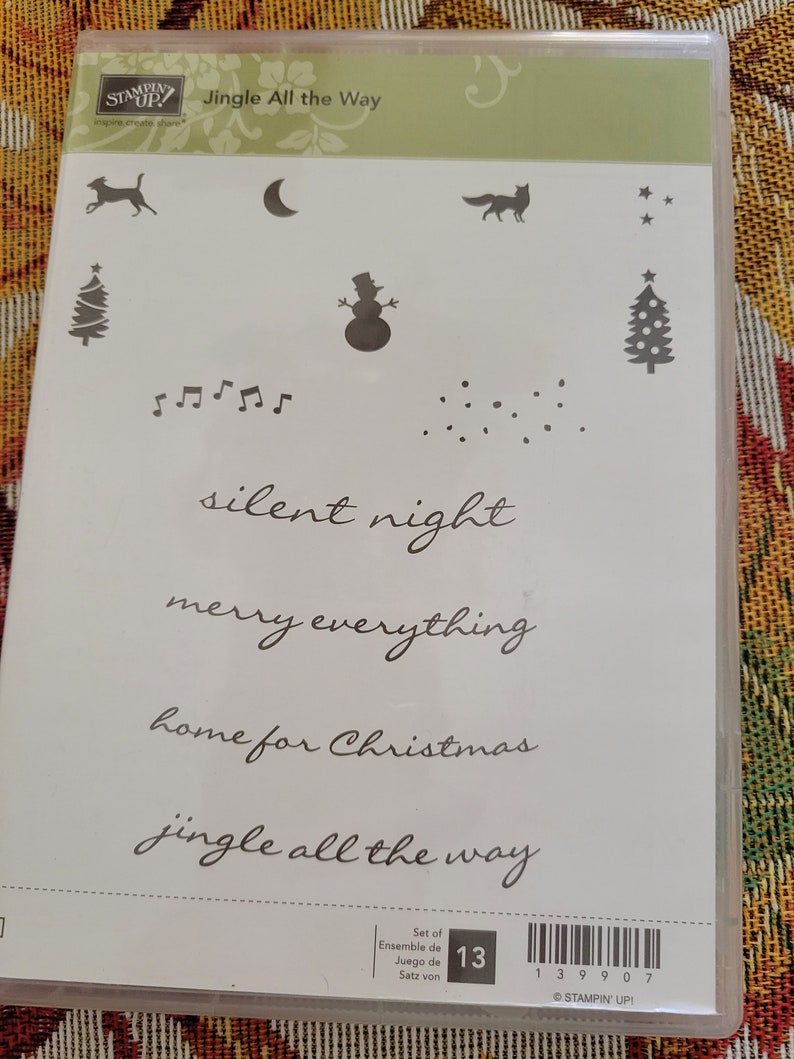 STAMPIN' UP!
inspire. create. share.
Jingle All the Way
silent night
merry everything
home for Christmas
jingle all the way
Set of
Ensemble de
Juego de
Satz von
13
139907
© STAMPIN' UP!